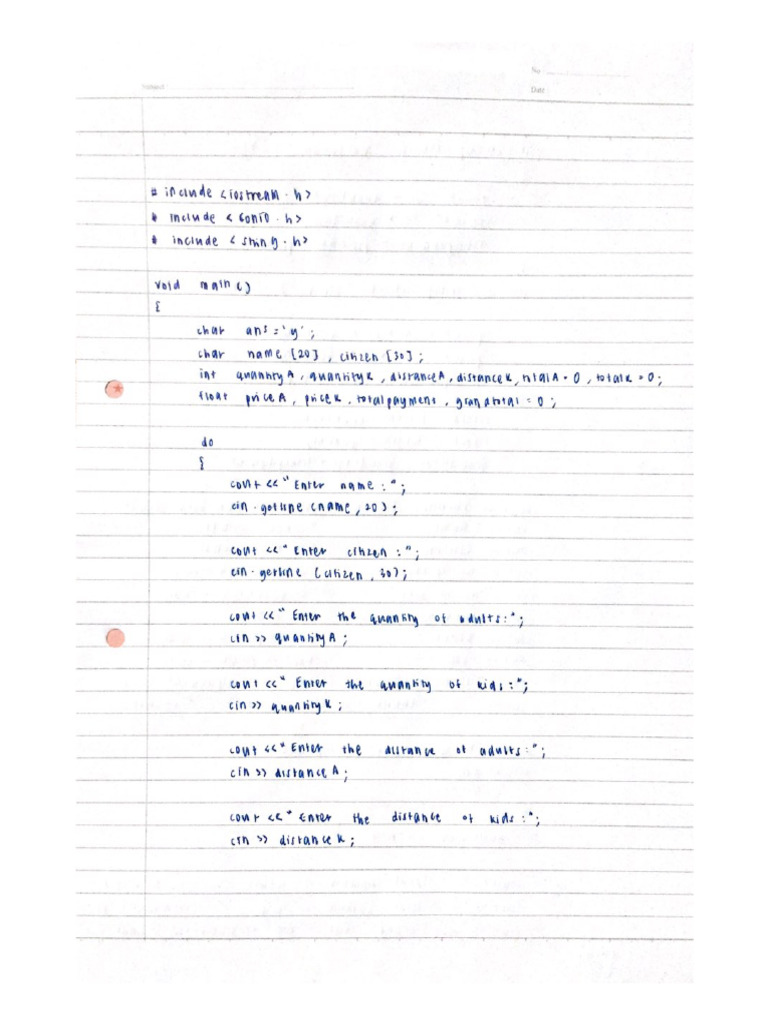 No
Subject
Date
# include <iostream.h>
# include <conio.h>
# include <string.h>
void main()
{
char ans = 'y';
char name [20], citizen [30];
int quantityA, quantityK, distanceA, distanceK, totalA = 0, totalK = 0;
float priceA, priceK, totalpayment, grandtotal = 0;
do
{
cout << "Enter name : ";
cin.getline (name, 20);
cout << "Enter citizen : ";
cin.getline (citizen, 30);
cout << "Enter the quantity of adults: ";
cin >> quantityA;
cout << "Enter the quantity of kids : ";
cin >> quantityK;
cout << "Enter the distance of adults: ";
cin >> distanceA;
cout << "Enter the distance of kids : ";
cin >> distanceK;